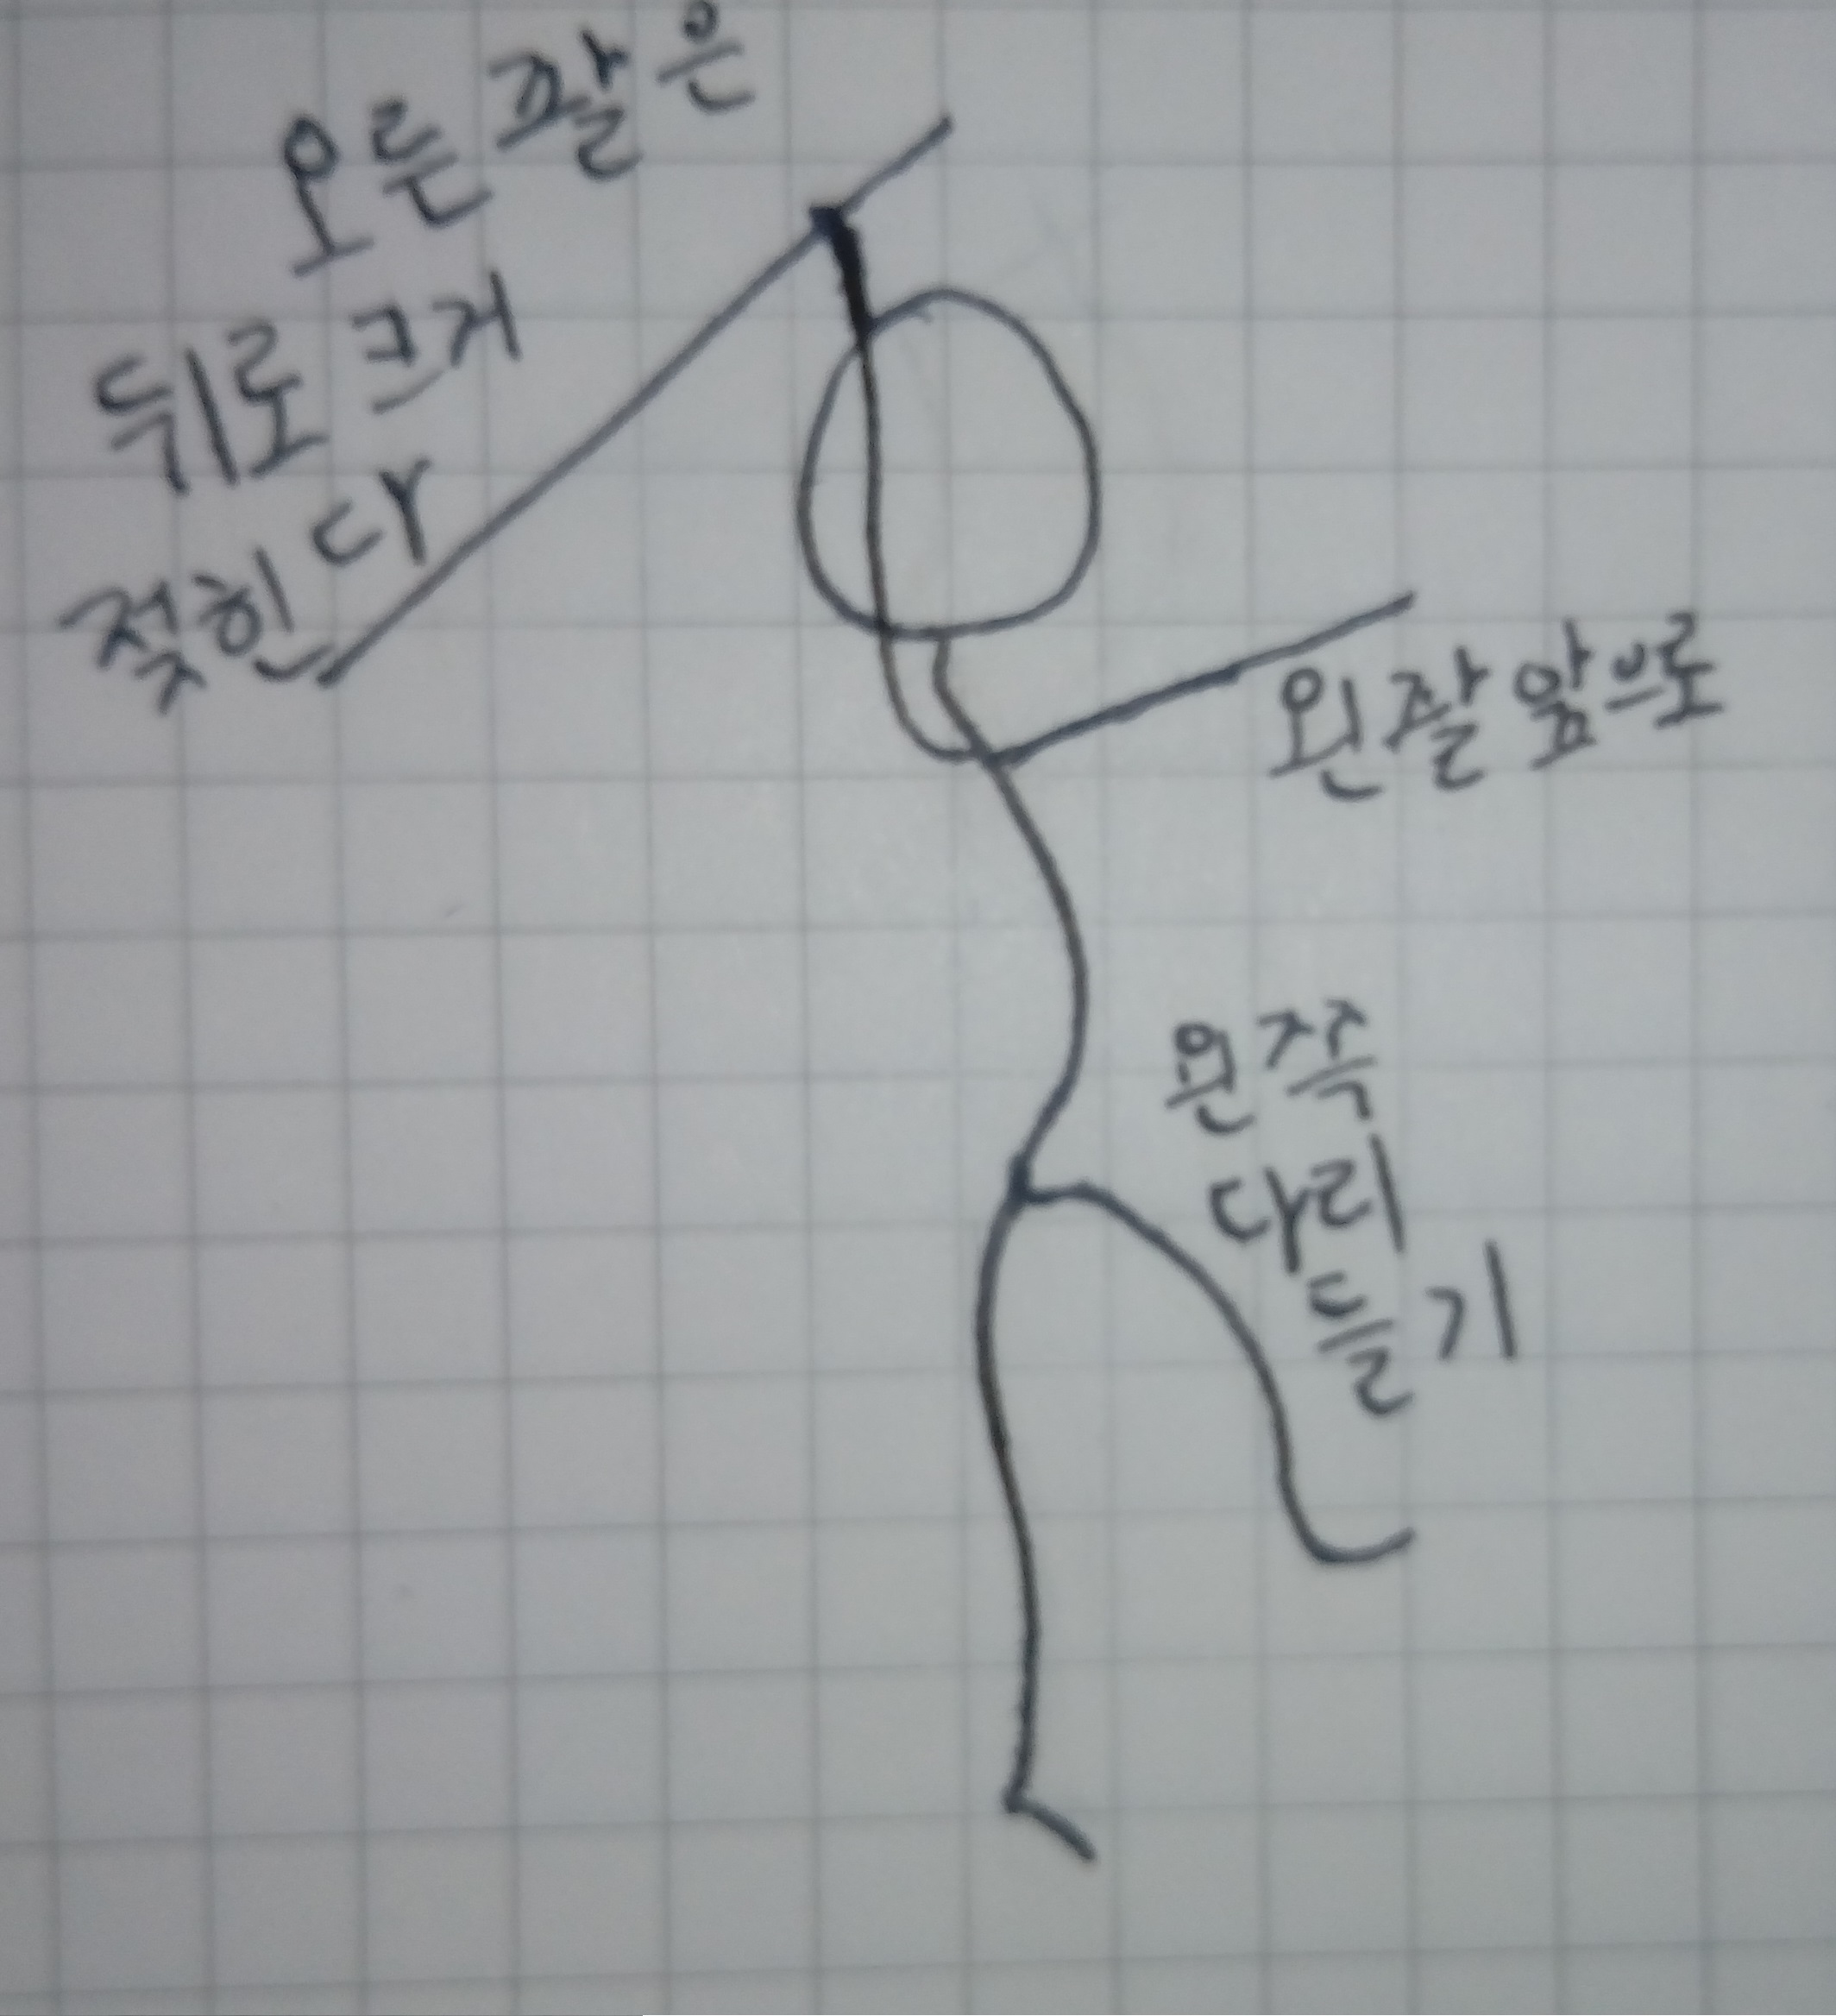 오른팔은
뒤로 크게
젖힌다
왼팔 앞으로
왼쪽
다리
들기